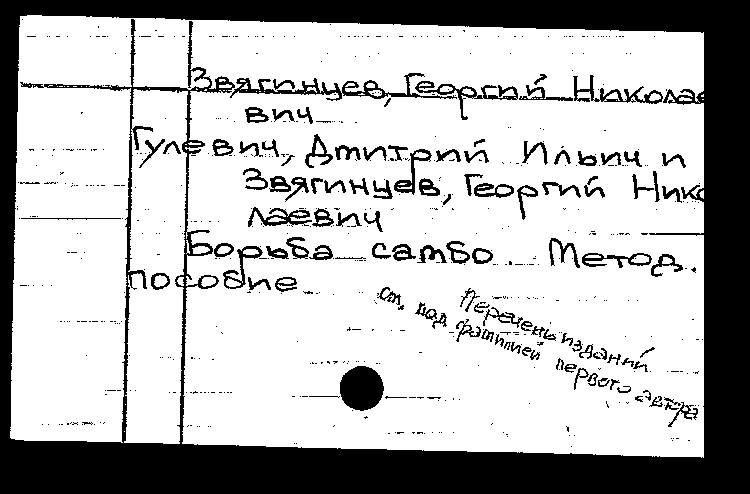 Звягинцев, Георгий Николае
вич
Гулевич, Дмитрий Ильич и
Звягинцев, Георгий Нико
лаевич
Борьба самбо. Метод.
пособие
Перечень изданий
см. под фамилией первого автора